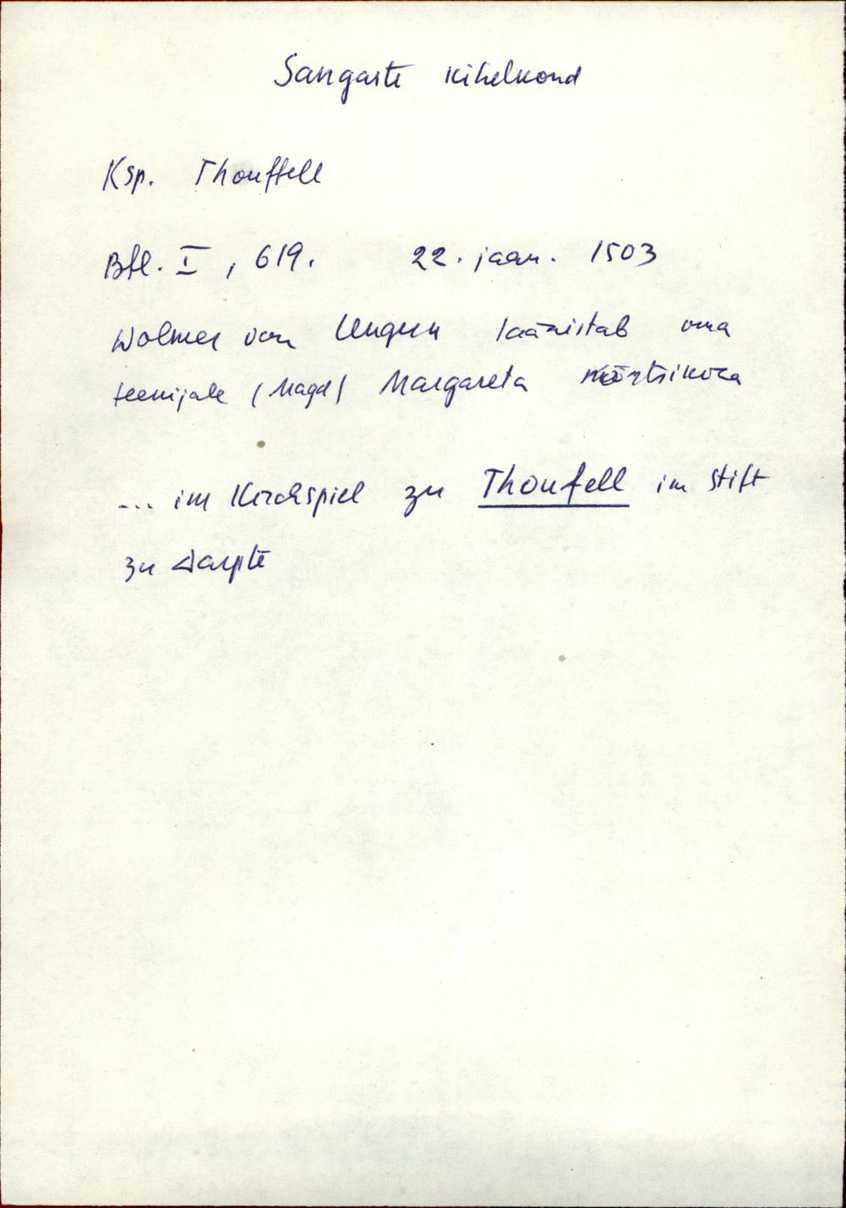 Sangaste kihelkond
Ksp. Thouffell
Bfl. I, 619. 22. jaan. 1503
Wolmer von Ungern läänistab oma
teenijale (Magd) Margareta
... im Kirchspiel zu Thoufell im Stift
zu Darpte